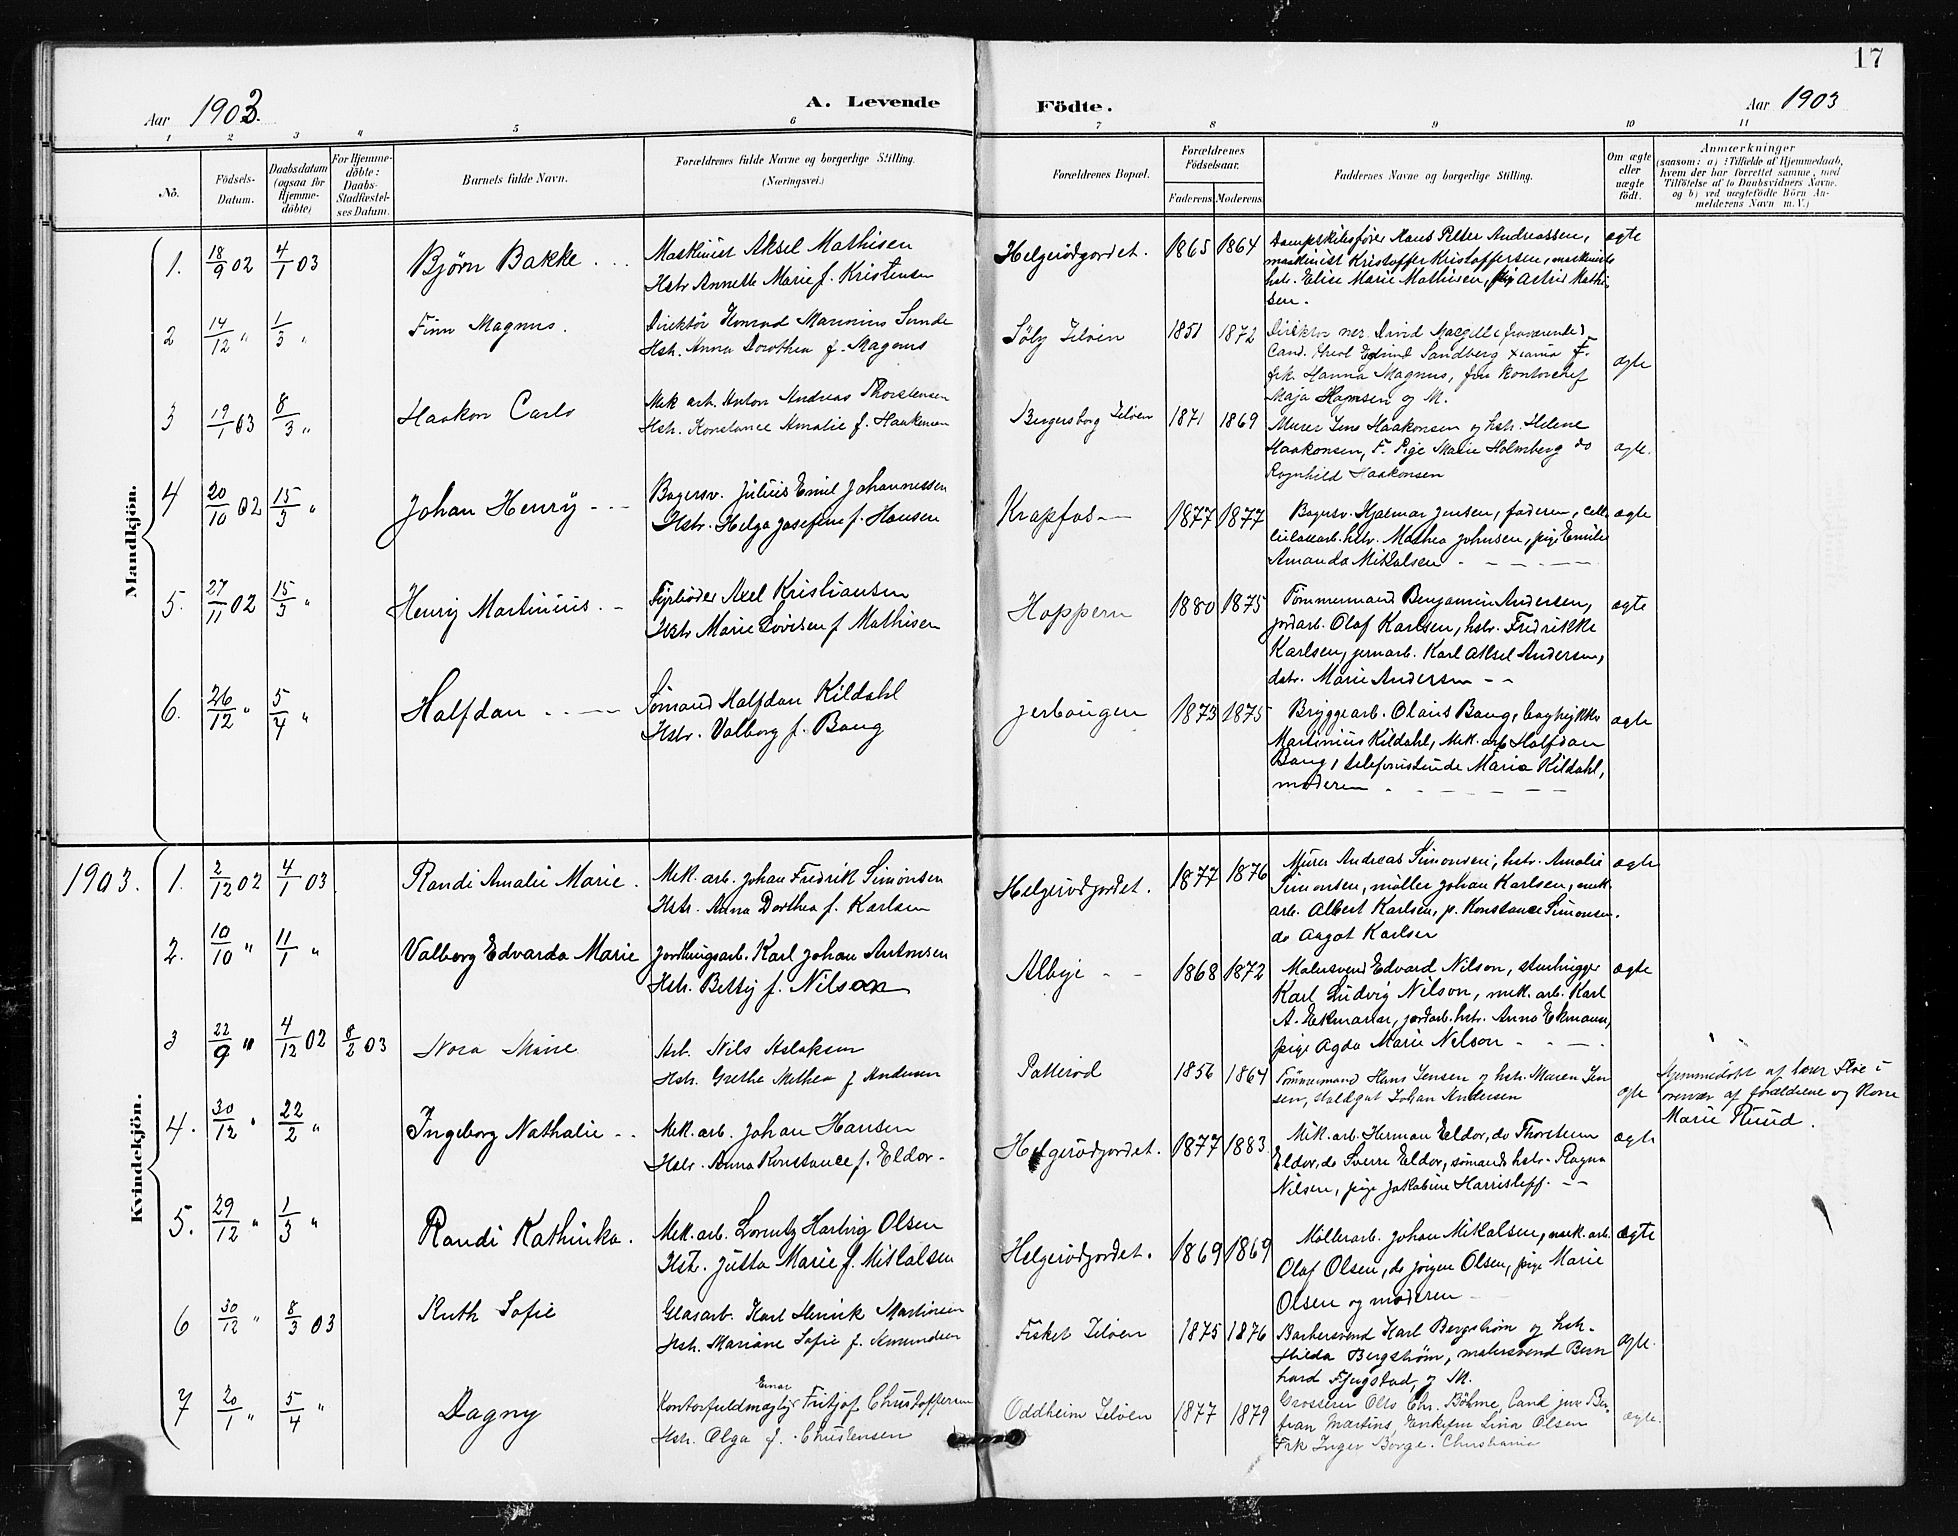 17
Aar 1903.
A. Levende
Födte.
Aar 1903
1 2 3 4 5 6 7 8 9 10 11
No.
Födsels-Datum.
Daabsdatum (ogsaa for Hjemme-döbte)
For Hjemme-döbte: Daabs-Stadfæstel-ses Datum.
Barnets fulde Navn.
Forældrenes fulde Navne og borgerlige Stilling.
(Næringsvei.)
Forældrenes Bopæl.
Forældrenes Födselsaar.
Faderens. Moderens.
Faddernes Navne og borgerlige Stilling.
Om ægte eller uægte födt.
Anmærkninger
(saasom: a) i Tilfælde af Hjemmedaab,
hvem der har forrettet samme, med
Tilföielse af to Daabsvidners Navne.
og b) ved uægtefödte Börn An-
melderens Navn m. V.)
Mandkjön.
1. 18/9 02 4/1 03 Bjørn Bakke Maskinist Aksel Mathisen
Hstr Annette Marie f. Kristensen
Helgerødgjordet. 1865 1864 Dampskibsfører Hans Petter Andreassen,
maskinist Kristoffer Kristoffersen, maskinists
hstr. Elise Marie Mathisen, pige Astrid Mathi-
sen. ægte
2 14/12 " 1/3 " Finn Magnus. Direktør Konrad Marinius Sunde
Hstr. Anna Dorothea f. Magnus
Søly Jeløen 1851 1872 Direktør David (fraværende)
Cand. theol Sandberg Xania F.
frk. Hanna Magnus, fru Kontorchef
Maja Hansen og M. ægte
3 19/1 03 8/3 " Haakon Carlo Mek arb. Anton Andreas Thorstensen
Hstr. Konstance Amalie f. Haakensen
Bergersborg Jeløen 1871 1869 Murer Jens Haakonsen og hstr. Helene
Haakonsen, F. Pige Marie Holmberg do
Ragnhild Haakonsen ægte.
4 20/10 02 15/3 " Johan Henry Bagersv. Julius Emil Johannessen
Hstr. Helga Josefine f. Hansen
Krapfos 1877 1877 Bagersv. Hjalmar Jensen, faderen, cell-
hstr. Mathea Johnsen, pige Emilie
Amanda Mikalsen ægte
5. 27/11 02 15/3 " Henry Martinius. Fyrbøder Axel Kristiansen
Hstr Marie Lovisen f Mathisen
Hoppern 1880 1875 Tømmermand Benjamin Andersen,
jordarb. Olaf Karlsen, hstr. Fredrikke
Karlsen, jernarb. Karl Aksel Andersen,
dstr. Marie Andersen ægte
6. 26/12 " 5/4 " Halfdan Sømand Halfdan Kildahl
Hstr. Valborg f. Bang
Jerbaugen 1873 1875 Bryggearb. Olaus Bang,
Martinius Kildahl, Mek. arb Halfdan
Bang, telefonistinde Maria Kildahl,
moderen ægte
1903.
Kvindekjön.
1. 2/12 02 4/1 03 Randi Amalie Marie. Mek. arb. Johan Fredrik Simonsen
Hstr. Anna Dorthea f. Karlsen
Helgerødgjordet. 1877 1876 Murer Andreas Simonsen, hstr. Amalie
Simonsen, møller Johan Karlsen, mek.
arb. Albert Karlsen, p. Konstance Simonsen.
do Aagot Karlsen ægte
2. 10/10 " 11/1 " Valborg Edvarda Marie Karl Johan Antonsen
Hstr. Betty f. Nilson
Albye 1868 1872 Malersvend Edvard Nilson, stenhugger
Karl Ludvig Nilson, mek. arb. Karl
A. Ekmann, jordarb. hstr. Anna Ekmann,
pige Agda Marie Nelson ægte
3 22/9 " 4/12 02 8/2 03 Nora Marie Arb. Nils Aslaksen
Hstr. Grethe Mathea f Andersen
Patterød 1856 1864 Tømmermand Hans Jensen og hstr. Maren Jen
sen, Johan Andersen ægte
Hjemmedøbt af lærer Floe i
overvær af forældrene og Kone
Marie Ruud.
4. 30/12 " 22/2 " Ingeborg Nathalie Mek. arb. Johan Hansen
Hstr. Anna Konstance f. Eldor.
Helgerødgjordet. 1877 1883. Mek. arb. Herman Eldor, do Thorstein
Eldor, do Sverre Eldor, sømands hstr. Ragna
Nilsen, pige Jakobine ægte
5. 29/12 " 1/3 " Randi Kathinka. Mek. arb. Lorentz Hartvig Olsen
Hstr. Jutta Marie f. Mikalsen
Helgerødgjordet. 1869 1869 Møllerarb. Johan Mikalsen, mek. arb.
Olaf Olsen, do Jørgen Olsen, pige Marie
Olsen og moderen ægte
6 30/12 " 8/3 03 Ruth Sofie Glasarb. Karl Henrik Martinsen
Hstr. Mariane Sofie f. Amundsen
Fisket Jeløen 1875 1876 Barbersvend Karl Bergstrøm og hstr.
Hilda Bergstrøm, malersvend Bern
hard Fjugstad, og M. ægte.
7 20/1 " 5/4 " Dagny Kontorfuldmægtig Einar Fritjof Christoffersen
Hstr. Olga f. Christensen
Oddheim Jeløen 1877 1879 Grosserer Otto Chr. Böhme, Cand jur Ber-
tran Martins, Enkefru Lina Olsen
Frk Inger Borge. Christiania ægte.